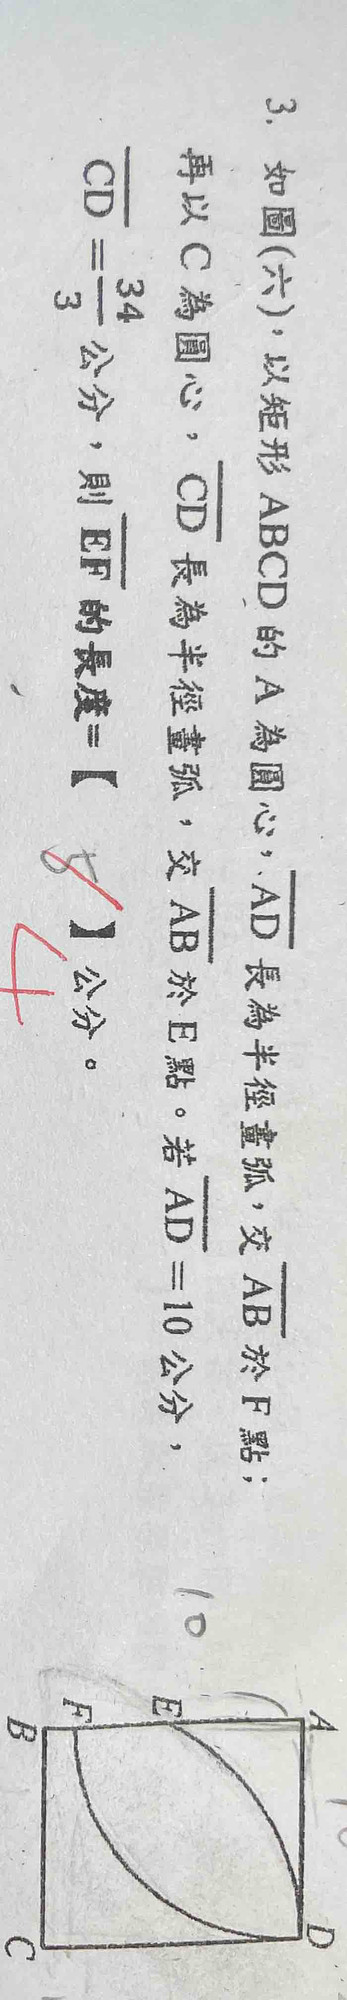 3. 如圖(六)，以矩形 ABCD 的 A 為圓心，AD 長為半徑畫弧，交 AB 於 F 點；
再以 C 為圓心，CD 長為半徑畫弧，交 AB 於 E 點。若 AD = 10 公分，
CD = 34/3 公分，則 EF 的長度=【 5 】公分。
4
10
10
A
D
E
F
B
C